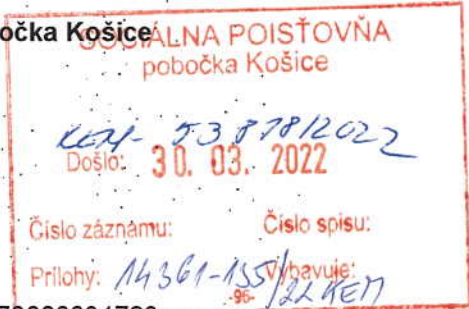 očka Košice
SOCIÁLNA POISŤOVŇA
pobočka Košice
53878/2022
Došlo: 30. 03. 2022
Číslo záznamu: Číslo spisu:
Prílohy: 14361-135/22 KEM Vybavuje:
-96-